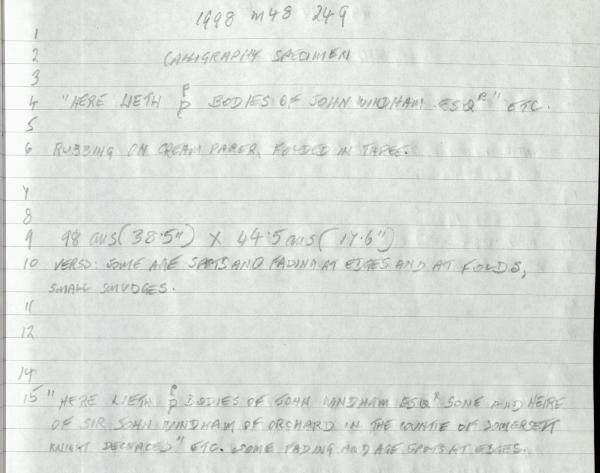 1998 M48 249
1
2 CALLIGRAPHY SPECIMEN
3
4 "HERE LIETH þe BODIES OF JOHN WINDHAM ESQR" ETC.
5
6 RUBBING ON CREAM PAPER, FOLDED IN THREE.
7
8
9 98 cms (38.5") X 44.5 cms (17.6")
10 VERSO: SOME AGE SPOTS AND FADING AT EDGES AND AT FOLDS,
SMALL SMUDGES.
11
12
14
15 "HERE LIETH þe BODIES OF JOHN WINDHAM ESQR SONE AND HEIRE
OF SIR JOHN WINDHAM OF ORCHARD IN THE COUNTIE OF SOMERSETT
KNIGHT DECEACED" ETC. SOME FADING AND AGE SPOTS AT EDGES.